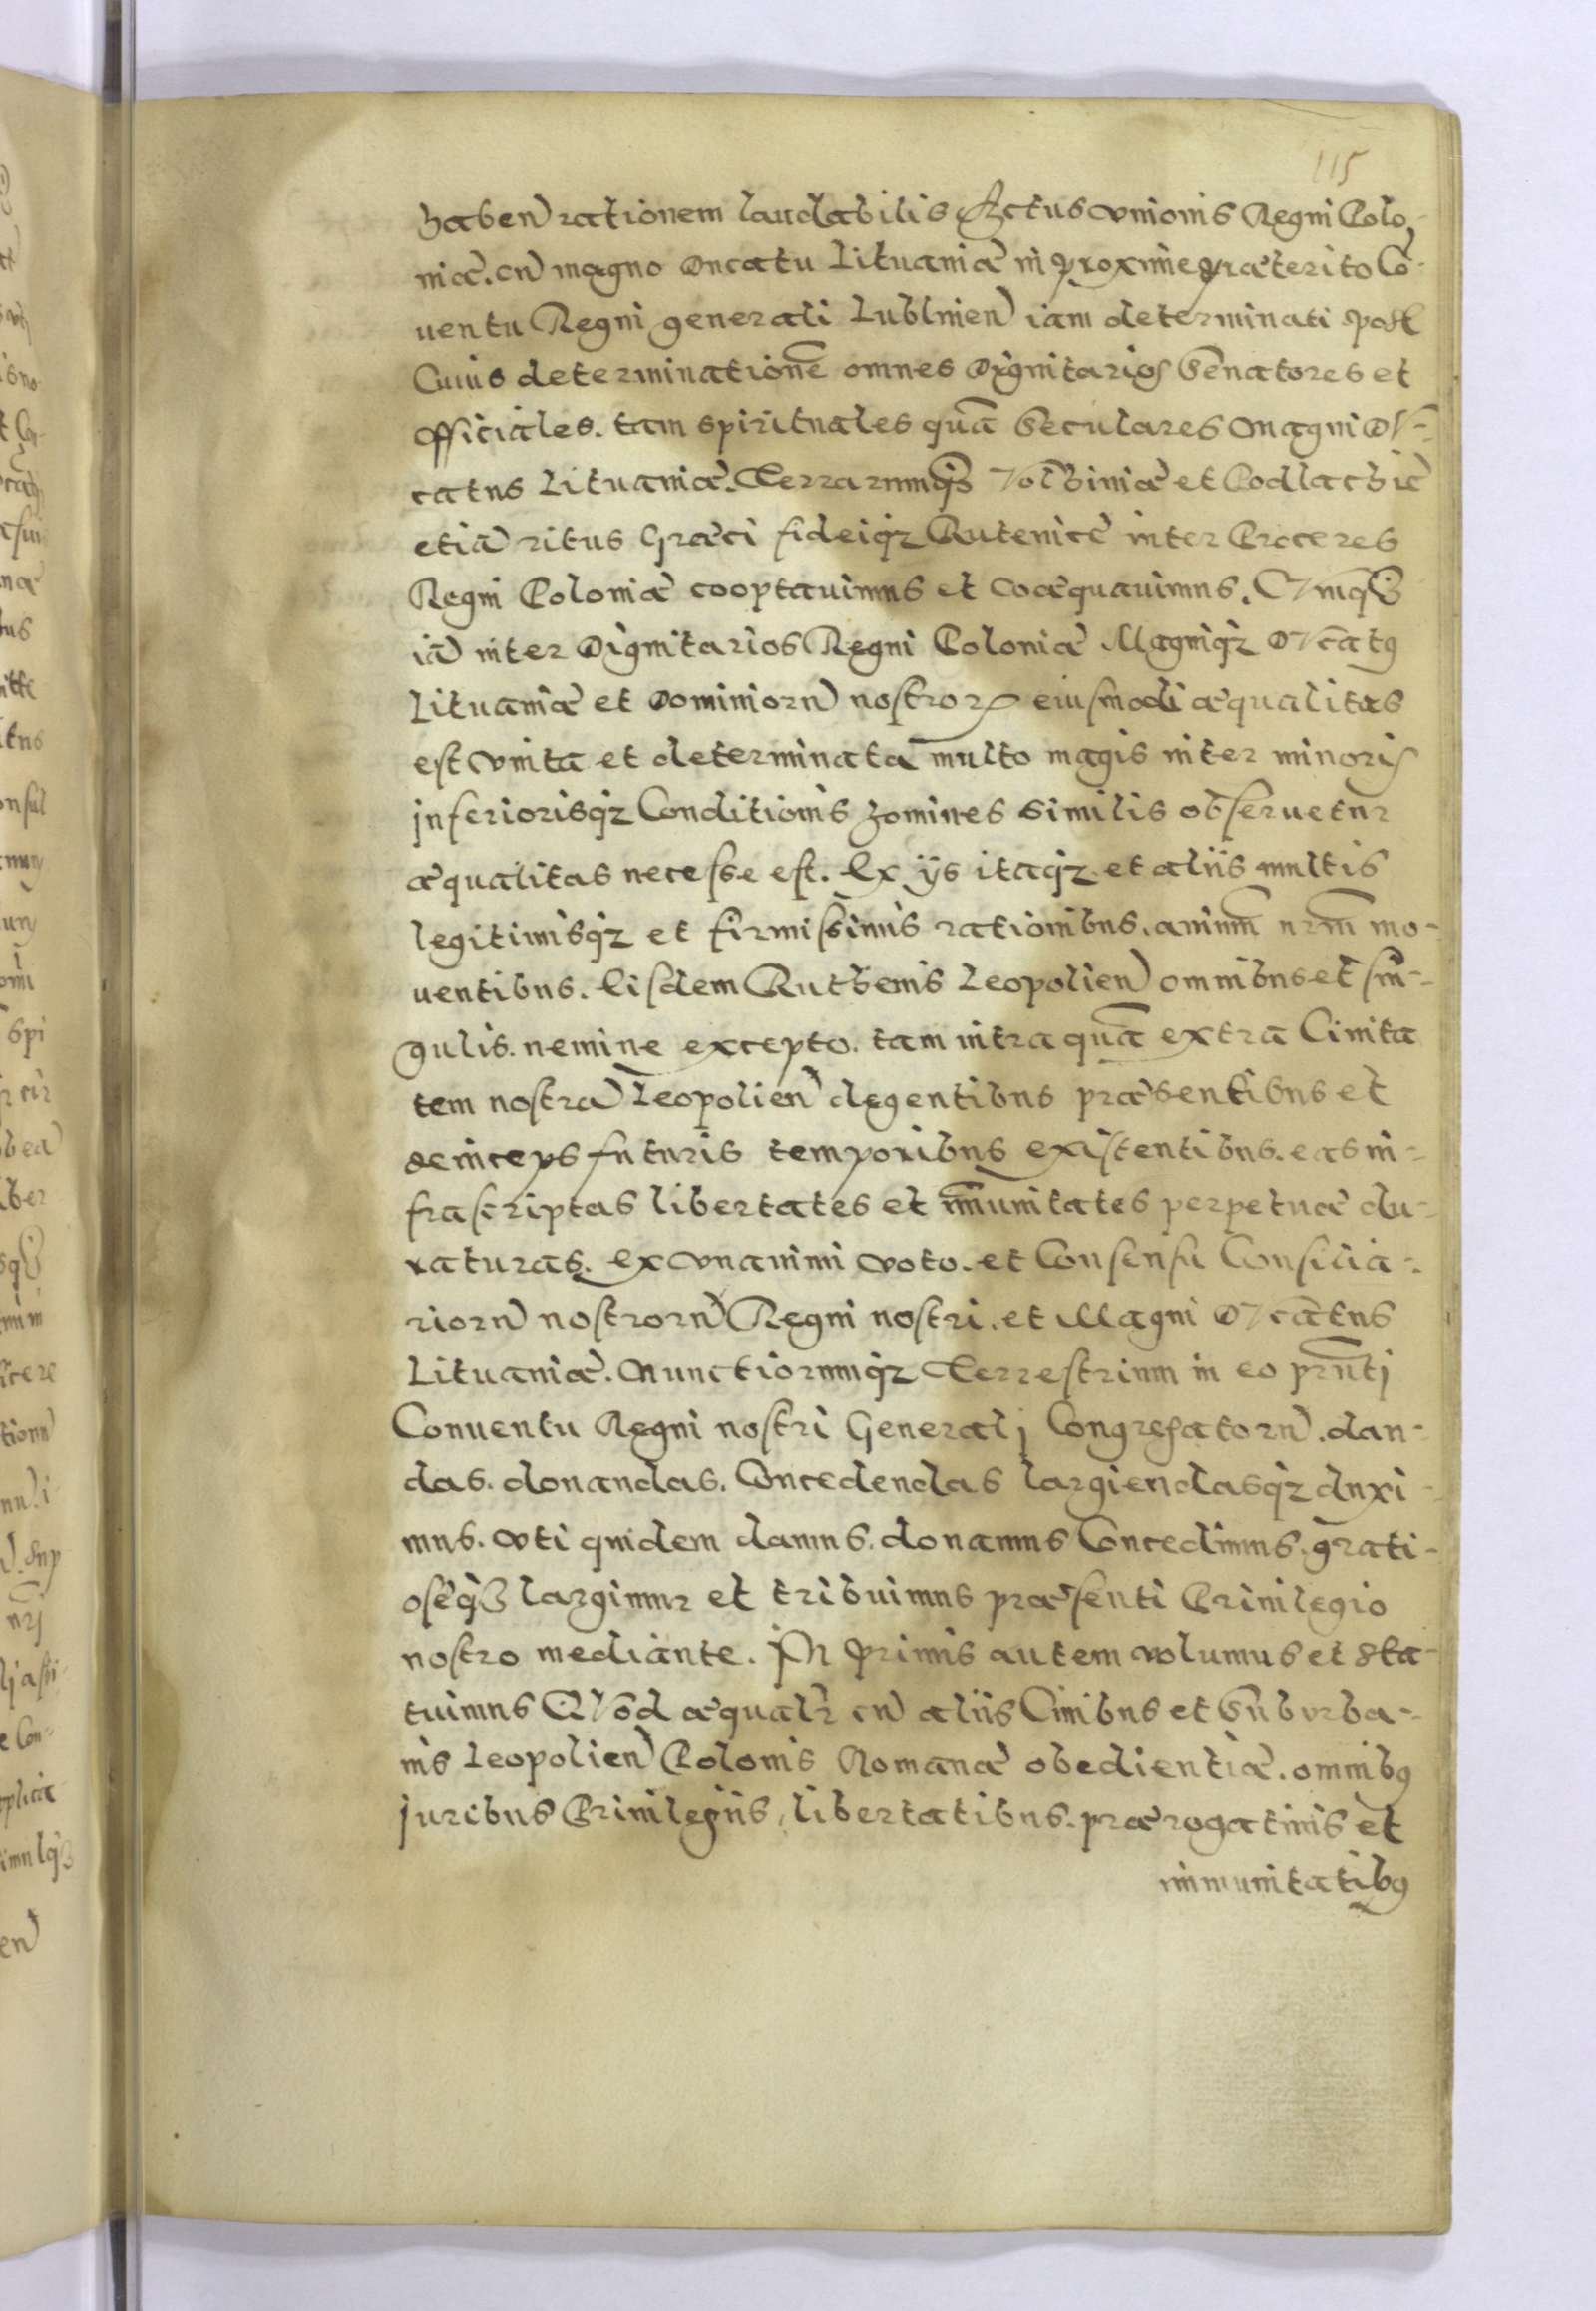 115
haben) rationem laudabilis Actus vnionis Regni Polo,
niæ. cu) magno Ducatu Lituaniæ in proxime præterito Cō-
uentu Regni generali Lublinen) iam determinati post
Cuius determinationē omnes Dignitarios Senatores et
officiales. tam spirituales quā Seculares Magni Du-
catus Lituaniæ. Terrarumqȝ Volhiniæ et Podlachiæ
etiā ritus Græci fideiqȝ Rutenicę inter Proceres
Regni Poloniæ cooptauimus et coæquauimus. Cumqȝ
iā inter Dignitarios Regni Poloniæ Magniqȝ Ducatꝰ
Lituaniæ et Dominioru) nostroꝝ eiusmodi æqualitas
est vnita et determinata multo magis inter minoris
inferiorisqȝ Conditionis homines similis obseruetur
æqualitas necesse est. Ex ijs itaqȝ et aliis multis
legitimisqȝ et firmissimis rationibus. animū nrm̄ mo-
uentibus. Eisdem Ruthenis Leopolien) omnibus et sin-
gulis. nemine excepto. tam intra quā extra Ciuita
tem nostrā Leopolien) degentibus præsentibus et
deinceps futuris temporibus existentibus. eas in-
frascriptas libertates et īmunitates perpetuæ du-
raturas. ex vnanimi voto. et Consensu Consilia-
rioru) nostroru) Regni nostri. et Magni Ducatus
Lituaniæ. Nunctiorumqȝ Terrestrium in eo prn̄tj
Conuentu Regni nostri Generalj Congregatoru). dan-
das. donandas. Concedendas largiendasqȝ duxi-
mus. vti quidem damus. donamus Concedimus. grati-
osèqȝ largimur et tribuimus præsenti Priuilegio
nostro mediante. In primis autem volumus et sta-
tuimus Quod æqualr̄ cu) aliis Ciuibus et Suburba-
nis Leopolien) Polonis Romanæ obedientiæ. omnibꝰ
juribus Priuilegiis, libertatibus. prærogatiuis et
immunitatibꝰ